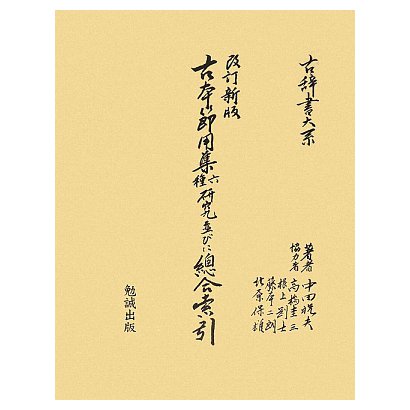 古辞書大系
改訂新版
古本節用集六種研究並びに總合索引
著者 中田祝夫
協力者 高橋圭三
根上剛士
藤本二朗
北原保雄
勉誠出版